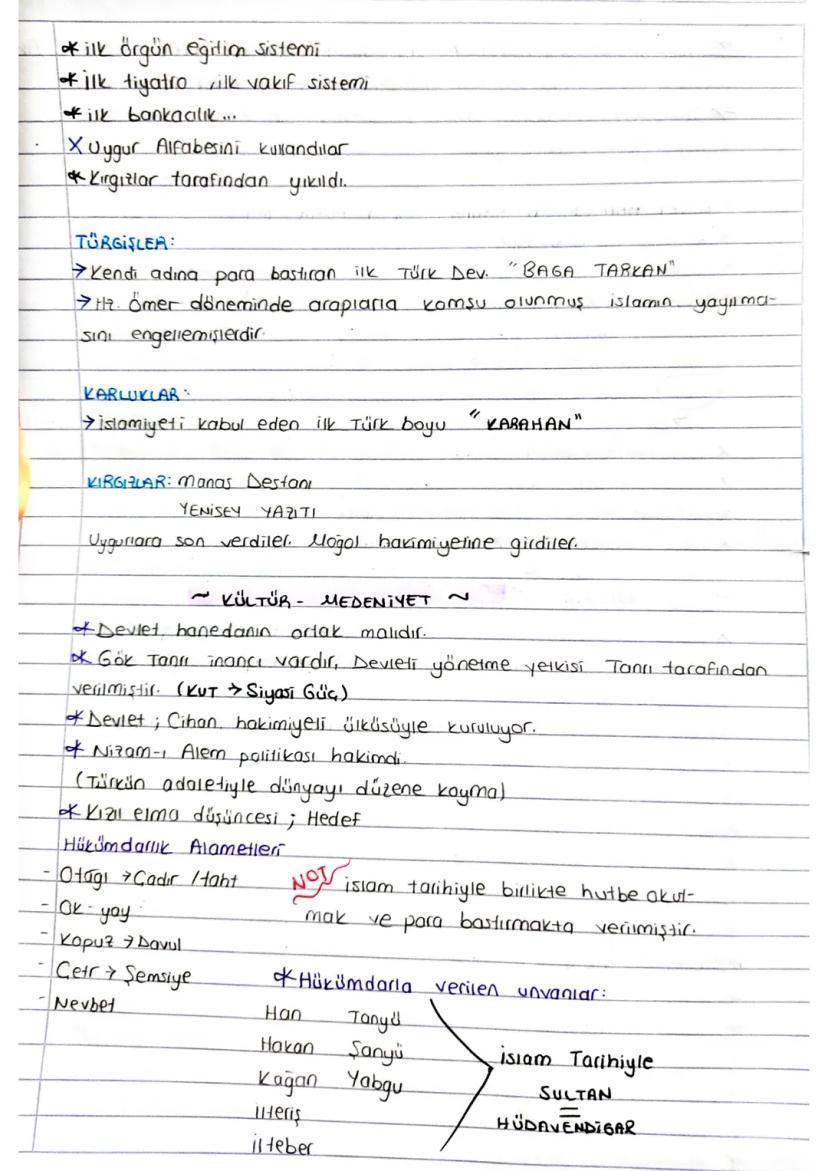 * ilk örgün eğitim sistemi
* ilk tiyatro, ilk vakıf sistemi
* ilk bankacılık...
X Uygur Alfabesini kullandılar
* Kırgızlar tarafından yıkıldı.
TÜRGİŞLER:
→ Kendi adına para bastıran ilk Türk Dev. "BAGA TARKAN"
→ Hz. Ömer döneminde araplarla komşu olunmuş islamın yayılma-
sını engellemişlerdir.
KARLUKLAR:
→ islamiyeti kabul eden ilk Türk boyu "KARAHAN"
KIRGIZLAR: Manas Destanı
YENİSEY YAZITI
Uygurlara son verdiler. Moğol hakimiyetine girdiler.
~ KÜLTÜR - MEDENİYET ~
* Devlet, hanedanın ortak malıdır.
* Gök Tanrı inancı vardır, Devleti yönetme yetkisi Tanrı tarafından
verilmiştir. (KUT → Siyasi Güç)
* Devlet ; Cihan hakimiyeti ülküsüyle kuruluyor.
* Nizam-ı Alem politikası hakimdi.
(Türkün adaletiyle dünyayı düzene koyma)
* Kızıl elma düşüncesi ; Hedef
Hükümdarlık Alametleri
- Otağı → Çadır / taht
- Ok - yay
- Kopuz → Davul
- Çetr → Şemsiye
- Nevbet
NOT islam tarihiyle birlikte hutbe okut-
mak ve para bastırmakta verilmiştir.
* Hükümdarla verilen unvanlar:
Han Tanyü
Hakan Şanyü
Kağan Yabgu
ilteriş
ilteber
islam Tarihiyle
SULTAN
=
HÜDAVENDİGAR